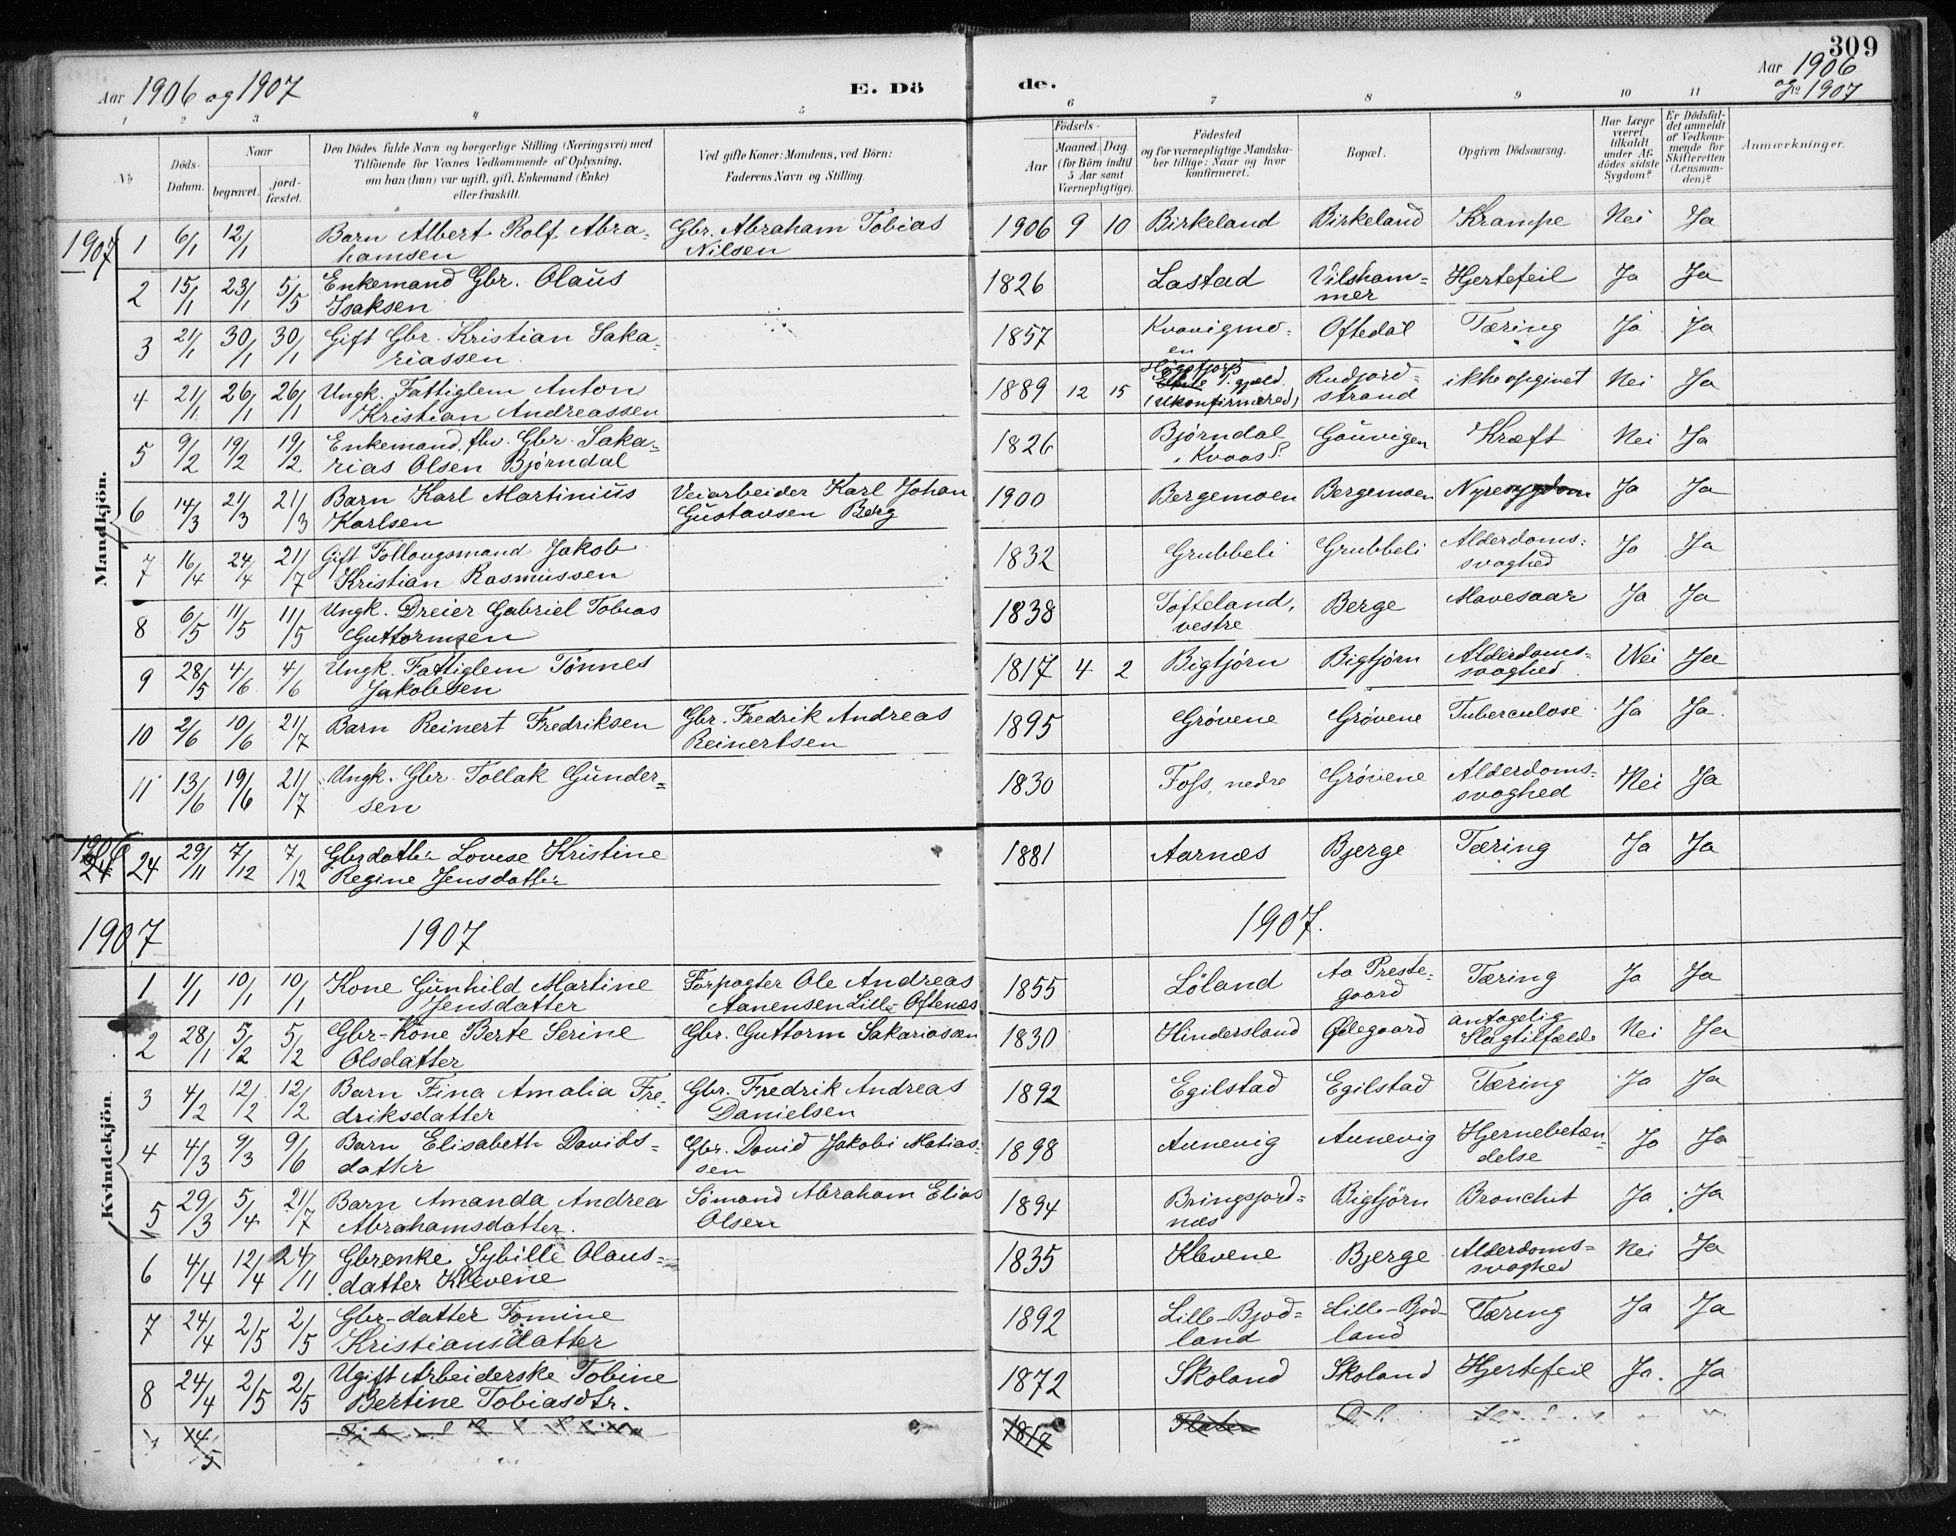 309
Aar 1906 og 1907
E. Dö de.
Aar 1906 og 1907
1 2 3 4 5 6 7 8 9 10 11
No
Döds-Datum.
Naar begravet. jord-fæstet.
Den Dödes fulde Navn og borgerlige Stilling (Næringsvei) med
Tilföiende for Voxnes Vedkommende af Oplysning,
om han (hun) var ugift, gift, Enkemand (Enke)
eller fraskilt.
Ved gifte Koner: Mandens, ved Börn:
Faderens Navn og Stilling.
Födsels-
Aar Maaned. Dag
(for Börn indtil
5 Aar samt
Værnepligtige).
Födested
og for værnepligtige Mandska-
ber tillige: Naar og hvor
konfirmeret.
Bopæl.
Opgiven Dödsaarsag.
Har Læge
været
tilkaldt
under Af-
dödes sidste
Sygdom?
Er Dödsfal-
det anmeldt
af Vedkom-
mende for
Skifteretten
(Lensman-
den)?
Anmærkninger.
Mandkjön.
1907 1 6/1 12/1 Barn Albert Rolf Abra- Gbr. Abraham Tobias 1906 9 10 Birkeland Birkeland Krampe Nei Ja
hamsen Nilsen
2 15/1 23/1 5/5 Enkemand Gbr. Olaus 1826 Lastad Vilsham- Hjertefeil Ja Ja
Isaksen mer
3 21/1 30/1 30/1 Gift Gbr. Kristian Saka- 1857 Kvavigmo- Oftedal Tæring Ja Ja
riassen en
4 21/1 26/1 26/1 Ungk. Fattiglem Anton 1889 12 15 Høgsfjord Rudjord- ikke opgivet Nei Ja
Kristian Andreassen P. gjæld. (Ukonfirmered) strand
5 9/2 19/2 19/2 Enkemand, fhv. Gbr. Saka- 1826 Bjørndal Gauvigen Kræft Nei Ja
rias Olsen Bjørndal i Kvaas S.
6 14/3 21/3 21/3 Barn Karl Martinius Veiarbeider Karl Johan 1900 Bergemoen Bergemoen Nyresygdom Ja Ja
Karlsen Gustavsen Berg
7 16/4 24/4 21/7 Gift Follaugsmand Jakob 1832 Grubbeli Grubbeli Alderdoms- Ja Ja
Kristian Rasmussen svaghed
8 6/5 11/5 11/5 Ungk. Dreier Gabriel Tobias 1838 Tofteland, Berge Mavesaar Ja Ja
Guttormsen vestre
9 28/5 4/6 4/6 Ungk. Fattiglem Tønnes 1817 4 2 Bigtjørn Bigtjørn Alderdoms- Nei Ja
Jakobsen svaghed
10 2/6 10/6 21/7 Barn Reinert Fredriksen Gbr. Fredrik Andreas 1895 Grøvene Grøvene Tuberculose Ja Ja.
Reinertsen
11 13/6 19/6 21/7 Ungk. Gbr. Tollak Gunder- 1830 Foss, nedre Grøvene Alderdoms- Nei Ja
sen svaghed
Kvindekjön.
1906 24 24 29/11 7/12 7/12 Gbrdatter Lovise Kristine 1881 Aarnæs Bjerge Tæring Ja Ja
Regine Jensdatter
1907 1907 1907.
1 1/1 10/1 10/1 Kone Gunhild Martine Forpagter Ole Andreas 1855 Løland Aa Preste- Tæring Ja Ja
Jensdatter Aanensen Lille Oftenæs gaard
2 28/1 5/2 5/2 Gbr-Kone Berte Serine Gbr. Guttorm Sakariasen 1830 Hindersland Ødegaard antagelig Slagtilfælde Nei Ja
Olsdatter
3 4/2 12/2 12/2 Barn Fina Amalia Fre- Gbr. Fredrik Andreas 1892 Egilstad Egilstad Tæring Ja Ja
driksdatter Danielsen
4 4/3 9/3 9/6 Barn Elisabeth Davids- Gbr. David Jakobi Matias- 1898 Aunevig Aunevig Hjernebetæn- Ja Ja
datter sen delse
5 29/3 5/4 21/7 Barn Amanda Andrea Sömand Abraham Elias 1894 Bringsjord- Bigtjörn Bronchit Ja Ja
Abrahamsdatter. Olsen næs
6 4/4 12/4 24/11 Gbrenke Sybille Olaus- 1835 Klevene Bjerge Alderdoms- Nei Ja
datter Klevene svaghed
7 24/4 2/5 2/5 Gbr-datter Tomine 1892 Lille-Bjod- Lille-Bjod- Tæring Ja Ja
Kristiansdatter land land
8 24/4 2/5 2/5 Ugift Arbeiderske Tobine 1872 Skoland Skoland Hjertefeil Ja. Ja
Bertine Tobiasdtr.
1817